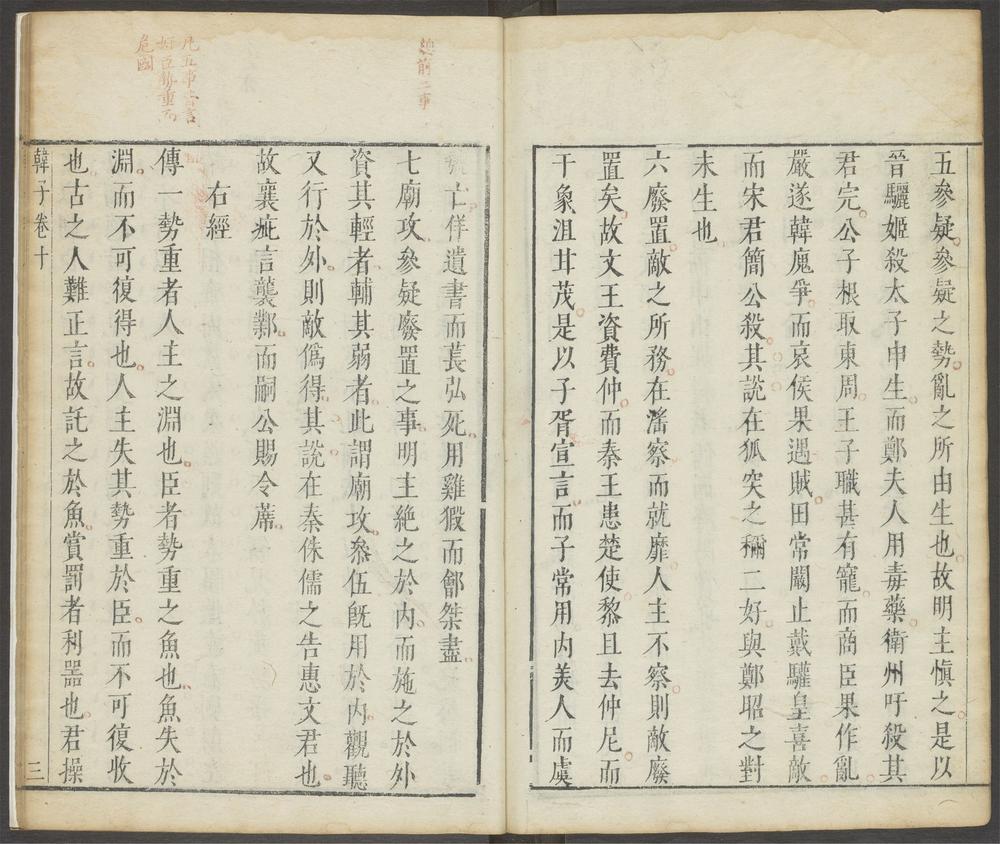 五參疑參疑之勢亂之所由生也故明主慎之是以
晉驪姬殺太子申生而鄭夫人用毒藥衛州吁殺其
君完公子根取東周王子職甚有寵而商臣果作亂
嚴遂韓廆爭而哀侯果遇賊田常闞止戴驩皇喜敵
而宋君簡公殺其說在狐突之稱二好與鄭昭之對
未生也
六廢置敵之所務在滛察而就靡人主不察則敵廢
置矣故文王資費仲而秦王患楚使黎且去仲尼而
干象沮甘茂是以子胥宣言而子常用內美人而虞
總前二事
虢亡佯遺書而萇弘死用雞猳而鄶桀盡
七廟攻參疑廢置之事明主絶之於內而施之於外
資其輕者輔其弱者此謂廟攻叅伍旣用於內觀聽
又行於外則敵僞得其說在秦侏儒之告惠文君也
故襄疵言襲鄴而嗣公賜令蓆
右經
傳一勢重者人主之淵也臣者勢重之魚也魚失於
淵而不可復得也人主失其勢重於臣而不可復收
也古之人難正言故託之於魚賞罰者利噐也君操
凡五事皆言
奸臣勢重而
危國
韓子卷十
三